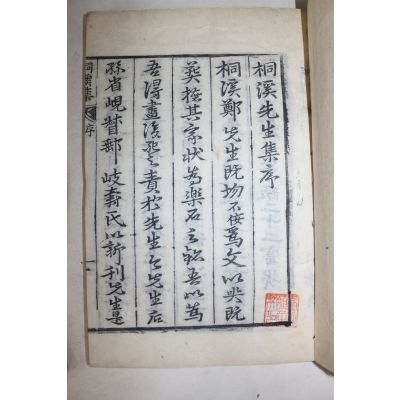 桐溪先生集序
桐溪鄭先生旣歿不佞爲文以哭旣
葬撰其宗狀爲樂石之銘吾以爲
吾得盡後死之責於先生而先生后
孫省峴督郵岐壽氏以新刊先生是
桐溪集 序